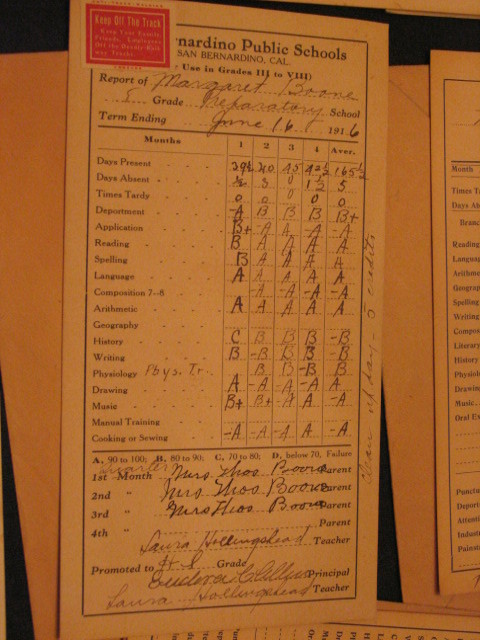 Keep Off The Track
ernardino Public Schools
SAN BERNARDINO, CAL.
Use in Grades III to VIII)
Report of Margaret Boone
Grade Preparatory School
Term Ending June 16 1916
Months 1 2 3 4 Aver.
Days Present 39½ 40 43 42½ 165½
Days Absent ½ 3 0 1½ 5
Times Tardy 0 0 0 0 0
Deportment -A B B B B+
Application B+ -A A -A -A
Reading B A A A A
Spelling B A A A A
Language A A A A A
Composition 7-8 -A A -A -A
Arithmetic A A A A A
Geography
History C B B B -B
Writing B -B B B -B
Physiology Phys. Tr. B B -B B
Drawing A -A -A -A A
Music B+ B+ -A A -A
Manual Training
Cooking or Sewing -A -A -A A -A
A, 90 to 100; B, 80 to 90; C, 70 to 80; D, below 70, Failure
Quarter
1st Month Mrs. Thos. Boone Parent
2nd " Mrs. Thos. Boone Parent
3rd " Mrs Thos. Boone Parent
4th " Parent
Laura Hollingshead Teacher
Promoted to Grade
Principal
Laura Hollingshead Teacher
credits
Month
Times T
Days Ab
Branc
Reading
Langua
Arithme
Geograp
Spelling
Writing
Compos
Literary
History
Physiolo
Drawing
Music
Oral E
Punctu
Deport
Attenti
Indust